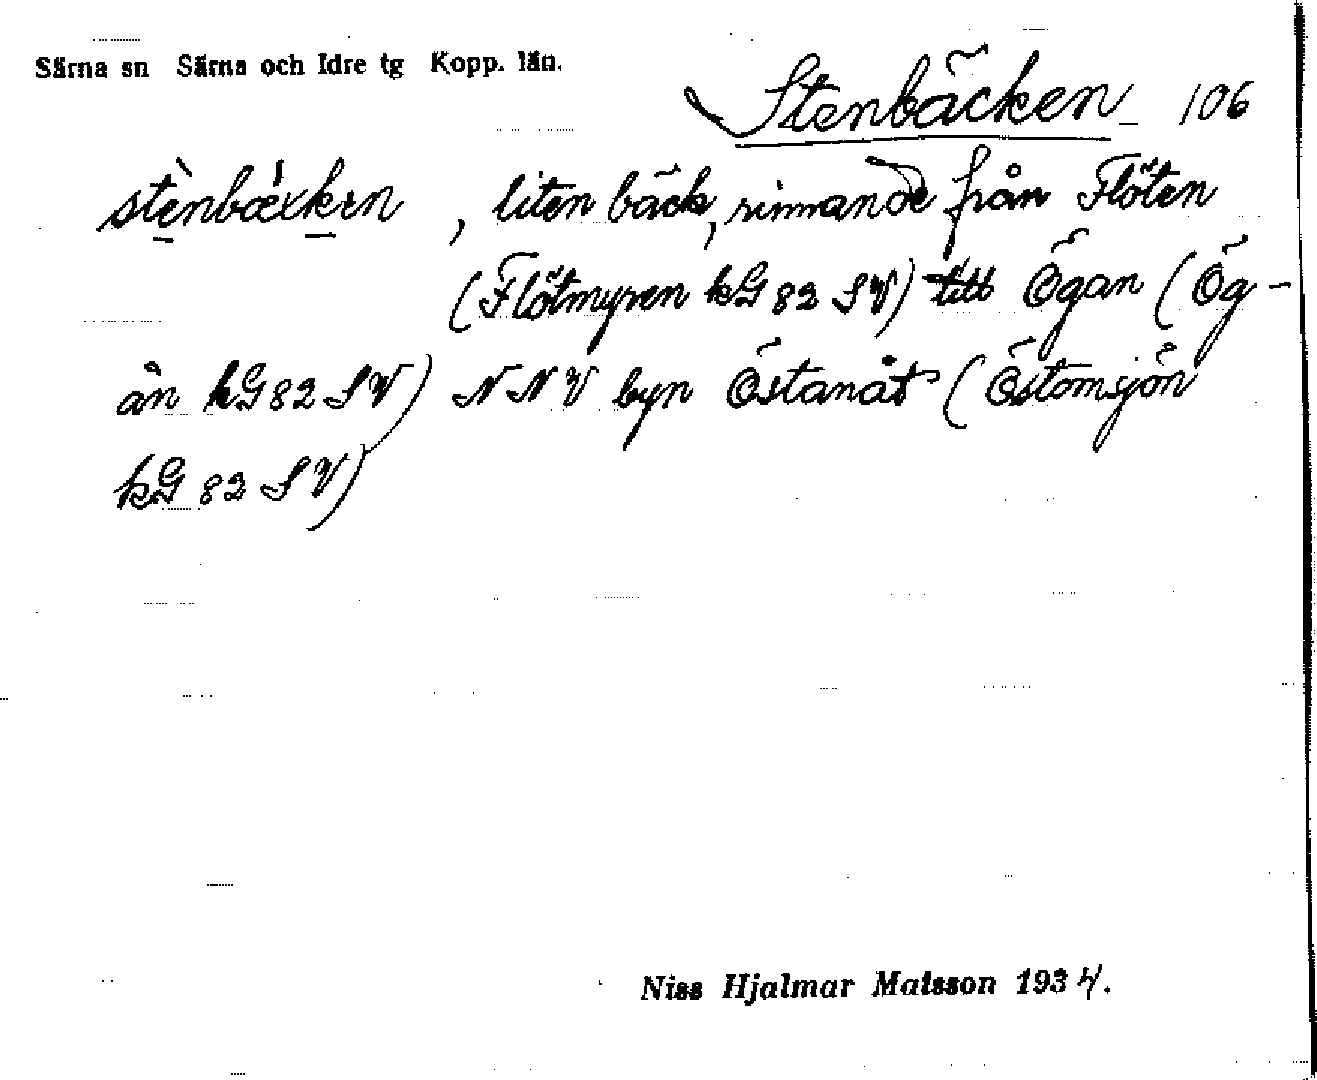 Särna sn Särna och Idre tg Kopp. län.
Stenbäcken 106
liten bäck, rinnande från Flöten
(Flötmyren kG 82 SV) till Ögan (Ög-
ån kG 82 SV) NNV byn Östanåt (Östomsjön
kG 82 SV)
Niss Hjalmar Matsson 1934.